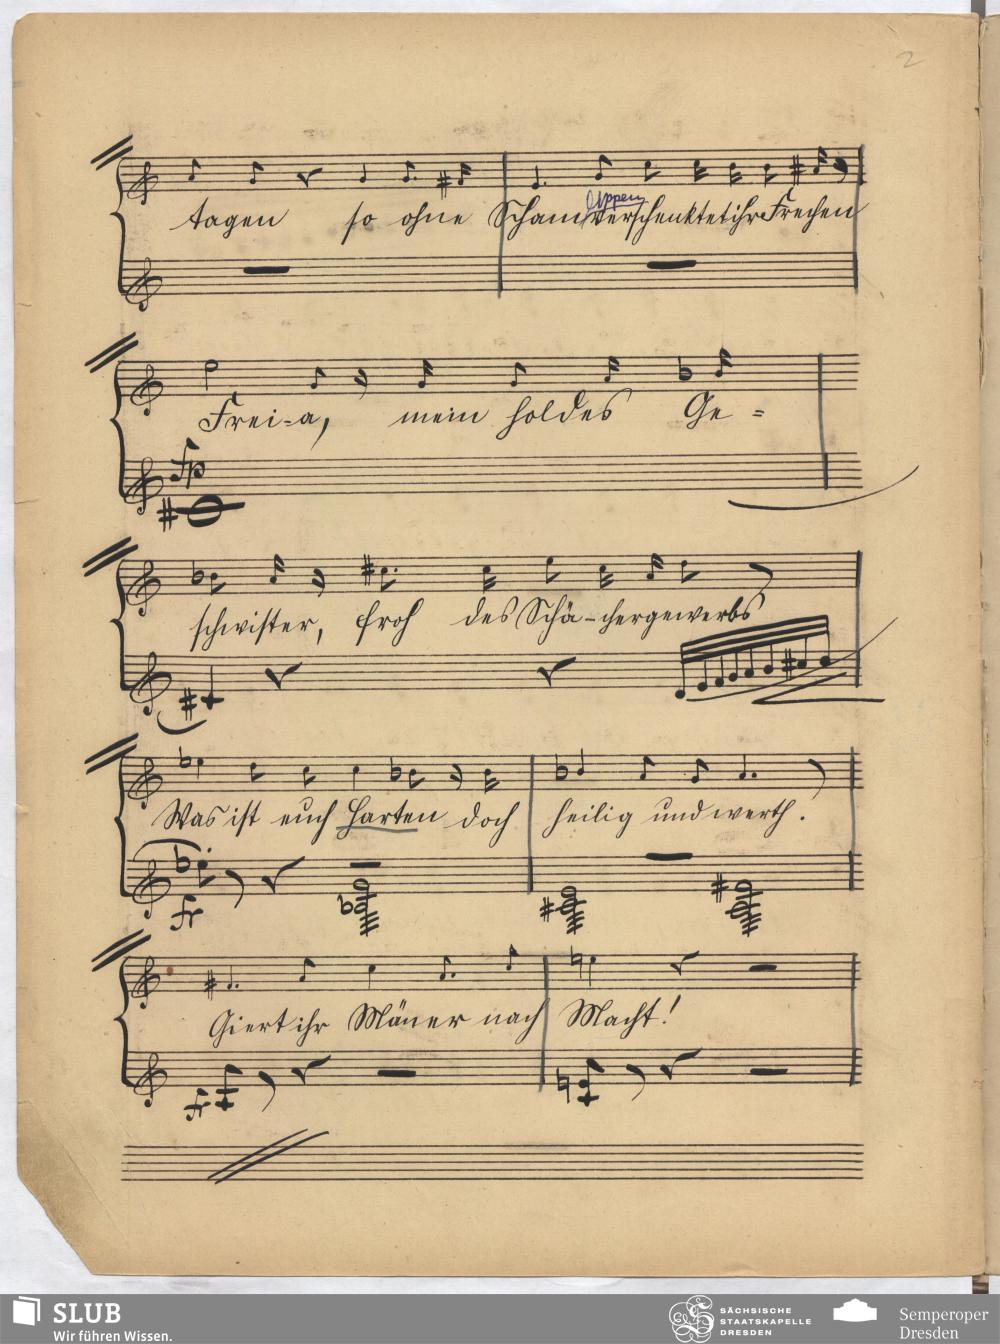 2
tagen so ohne Scham verschenktet ihr Frechen
Freia, mein holdes Ge=
fp
schwister, froh des Schä-chergewerbs
Was ist euch Harten doch heilig und werth.
fr
Giert ihr Mäner nach Macht!
fr
SLUB
Wir führen Wissen.
SÄCHSISCHE
STAATSKAPELLE
DRESDEN
Semperoper
Dresden